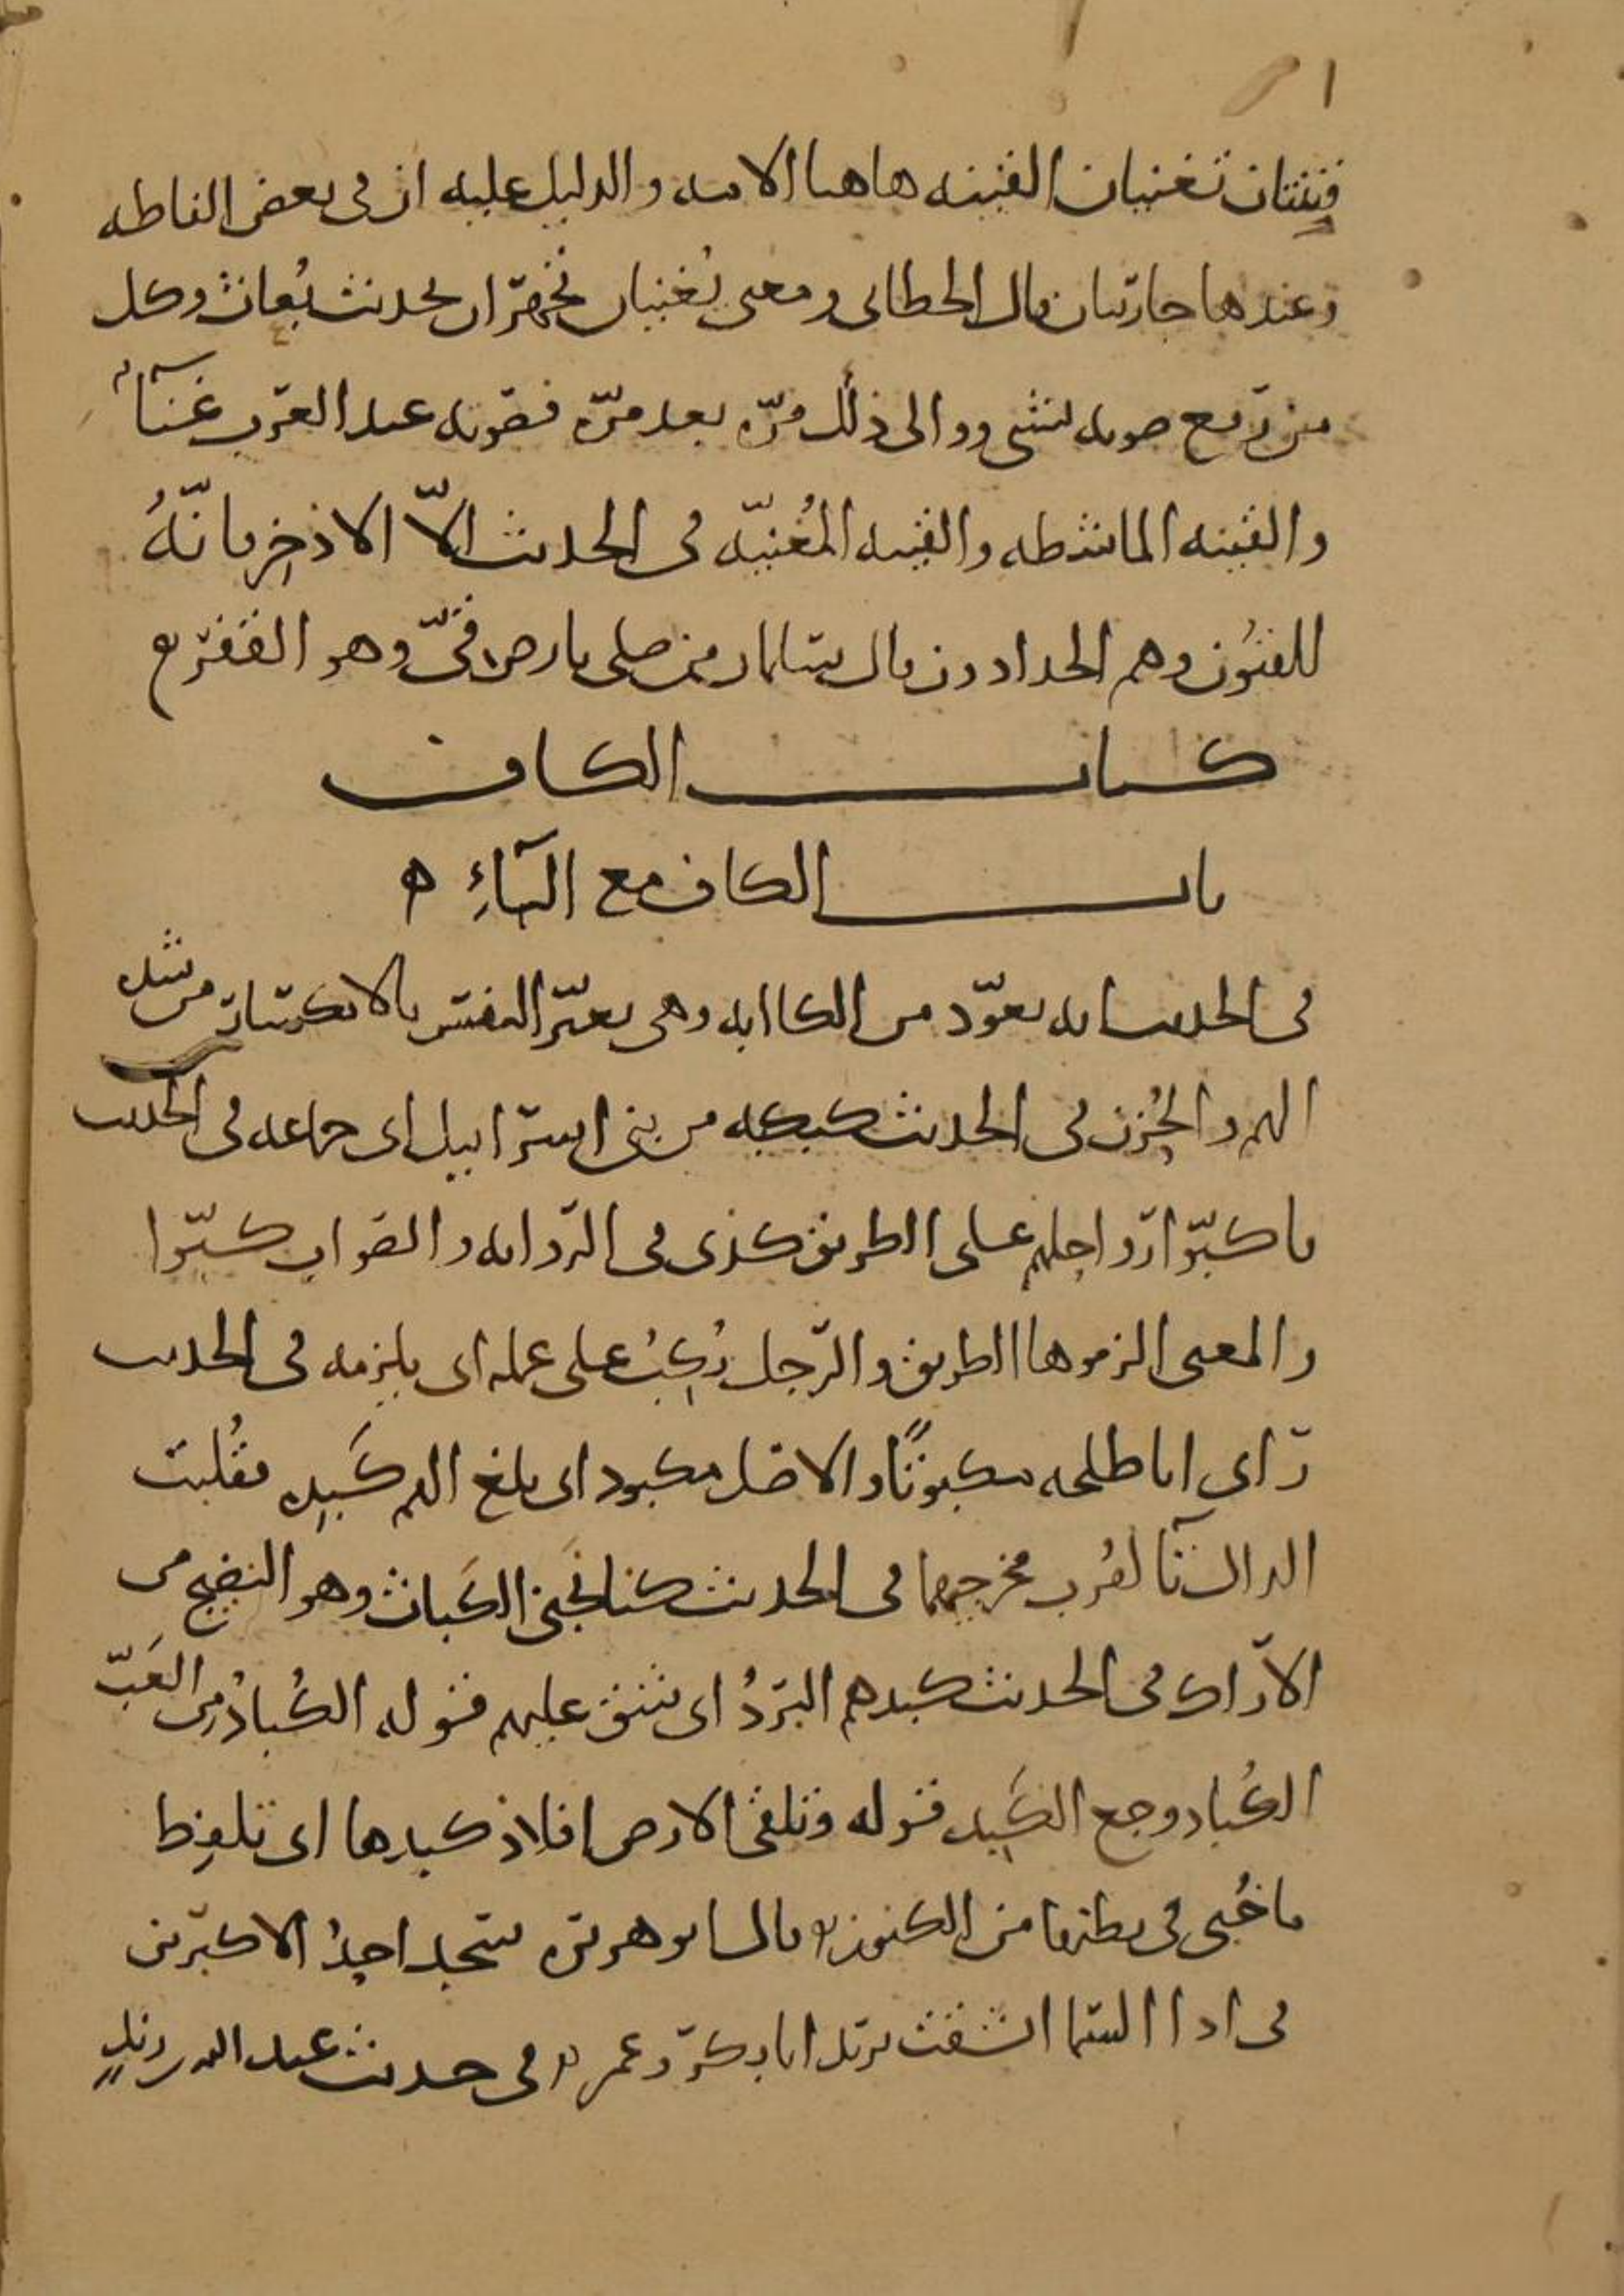 قينتان تغنيان القينه هاهنا الامه والدليل عليه ان في بعض الفاظه
وعندها جاريتان قال الخطابي ومعنى يُغنيان تجهران بحديث بُعاث وكل
من رفع صوته بشي ووالى ذلك مرّه بعد مرّه فصوته عند العرب غنآء
والقينه الماشطه والقينه المُغنيّه في الحديث الاّ الاذخِر فانّهُ
للقيُون وهم الحدادون قال سلمان من صلى بارض قيّ وهو القفر
كتاب الكاف
باب الكاف مع البآءِ ه
في الحديث انه تعوّذ من الكاابه وهي تغيّر النفس بالانكسار من شده
الهم والحُزن في الحديث كبكبه من بني اسراييل اي جماعه في الحديث
فاكبّوا رواحلهم على الطريق كذى في الروايه والصواب كبّوا
والمعنى الزموها الطريق والرّجل يُكِبُ على عمله اي يلزمه في الحديث
راى ابا طلحه مكبوتًا والاصل مكبود اي بلغ الهم كَبِده فقُلبت
الدال تآ لقُرب مخرجهما في الحديث كنا نَجني الكَباث وهو النضيج من
الاراك في الحديث كبدهم البردُ اي شق عليهم قوله الكُبادُ من العَبّ
الكُباد وجع الكَبِد قوله وتلقى الارض افلاذ كبدها اي تلفِظ
ما خُبي في بطنها من الكنوز قال ابو هريره سجد احدُ الاكبرين
في اذا السما انشقت يريد ابا بكر وعمر في حديث عبد الله بن زيدٍ